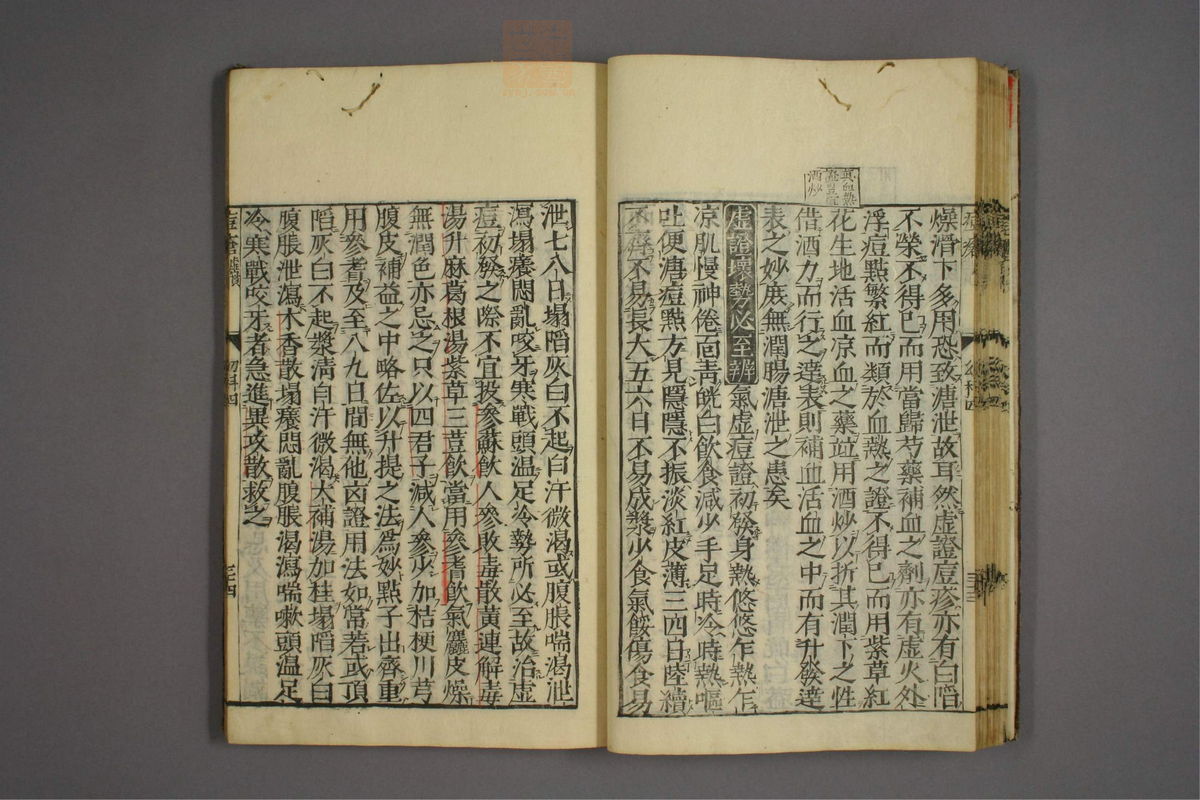 燥滑下多用恐致溏泄故耳然虛證痘疹亦有白䧟
不榮不得已而用當歸芍藥補血之劑亦有虛火外
浮痘點繁紅而類於血熱之證不得已而用紫草紅
花生地活血凉血之藥竝用酒炒以折其潤下之性
借酒力而行之達表則補血活血之中而有升發達
表之妙庻無潤腸溏泄之患矣
虛證壞勢必至辨氣虛痘證初發身熱悠悠乍熱乍
凉肌慢神倦面靑㿠白飲食減少手足時冷時熱嘔
吐便溏痘點方見隱隱不振淡紅皮薄三四日陸續
不齊不易長大五六日不易成漿少食氣餒傷食易
泄七八日塌䧟灰白不起自汗微渴或腹脹喘渴泄
瀉塌癢悶亂咬牙寒戰頭温足冷勢所必至故治虛
痘初發之際不宜投參蘇飲人參敗毒散黃連解毒
湯升麻葛根湯紫草三荳飲當用參耆飲氣麤皮燥
無潤色亦忌之只以四君子減人參少加桔梗川芎
腹皮補益之中略佐以升提之法爲妙點子出齊重
用參耆及至八九日間無他凶證用法如常若或頂
䧟灰白不起漿淸自汗微渴大補湯加桂塌䧟灰白
腹脹泄瀉木香散塌癢悶亂腹脹渴瀉喘嗽頭温足
冷寒戰咬牙者急進異攻散救之
幼科四
三四